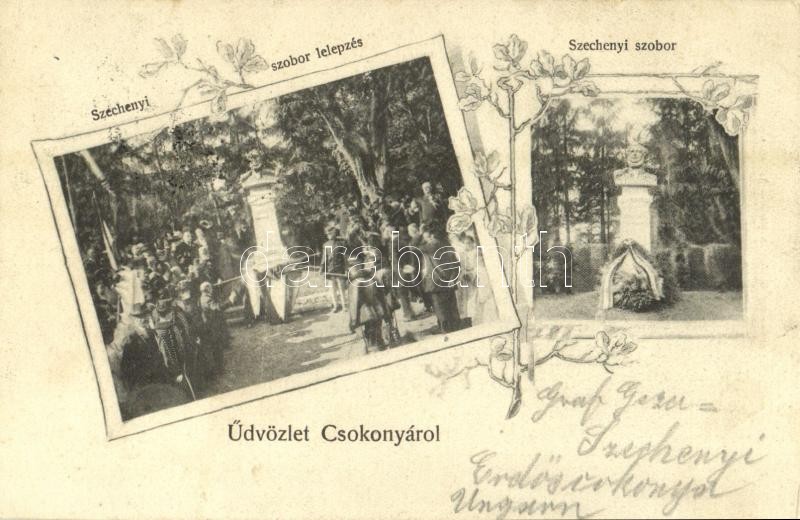 Szechenyi szobor lelepzés
Szechenyi szobor
darabanth
Űdvözlet Csokonyárol
Graf Geza=
Szechenyi
Erdőscokonya
Ungarn